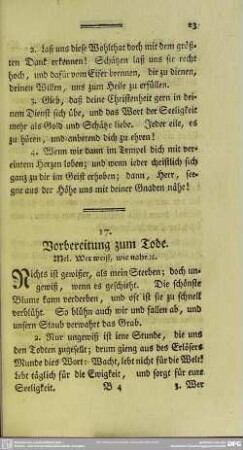 23
2. Laß uns diese Wohlthat doch mit dem größ-
ten Dank erkennen! Schätzen laß uns sie recht
hoch, und dafür vom Eifer brennen, dir zu dienen,
deinen Willen, uns zum Heile zu erfüllen.
3. Gieb, daß deine Christenheit gern in dei-
nem Dienst sich übe, und das Wort der Seeligkeit
mehr als Gold und Schätze liebe. Jeder eile, es
zu hören, und anbetend dich zu ehren!
4. Wenn wir dann im Tempel dich mit ver-
eintem Herzen loben; und wenn jeder christlich sich
ganz zu dir im Geist erhoben; dann, Herr, seg-
ne aus der Höhe uns mit deiner Gnaden nähe!
17.
Vorbereitung zum Tode.
Mel. Wer weiß, wie nahe ꝛc.
Nichts ist gewißer, als mein Sterben; doch un-
gewiß, wenn es geschieht. Die schönste
Blume kann verderben, und oft ist sie zu schnell
verblüht. So blühn auch wir und fallen ab, und
unsern Staub verwahrt das Grab.
2. Nur ungewiß ist iene Stunde, die uns
den Todten zugesellt; drum gieng aus des Erlösers
Munde dies Wort: Wacht, lebt nicht für die Welt!
Lebt täglich für die Ewigkeit, und sorgt für eure
Seeligkeit.
B 4
3. Wer